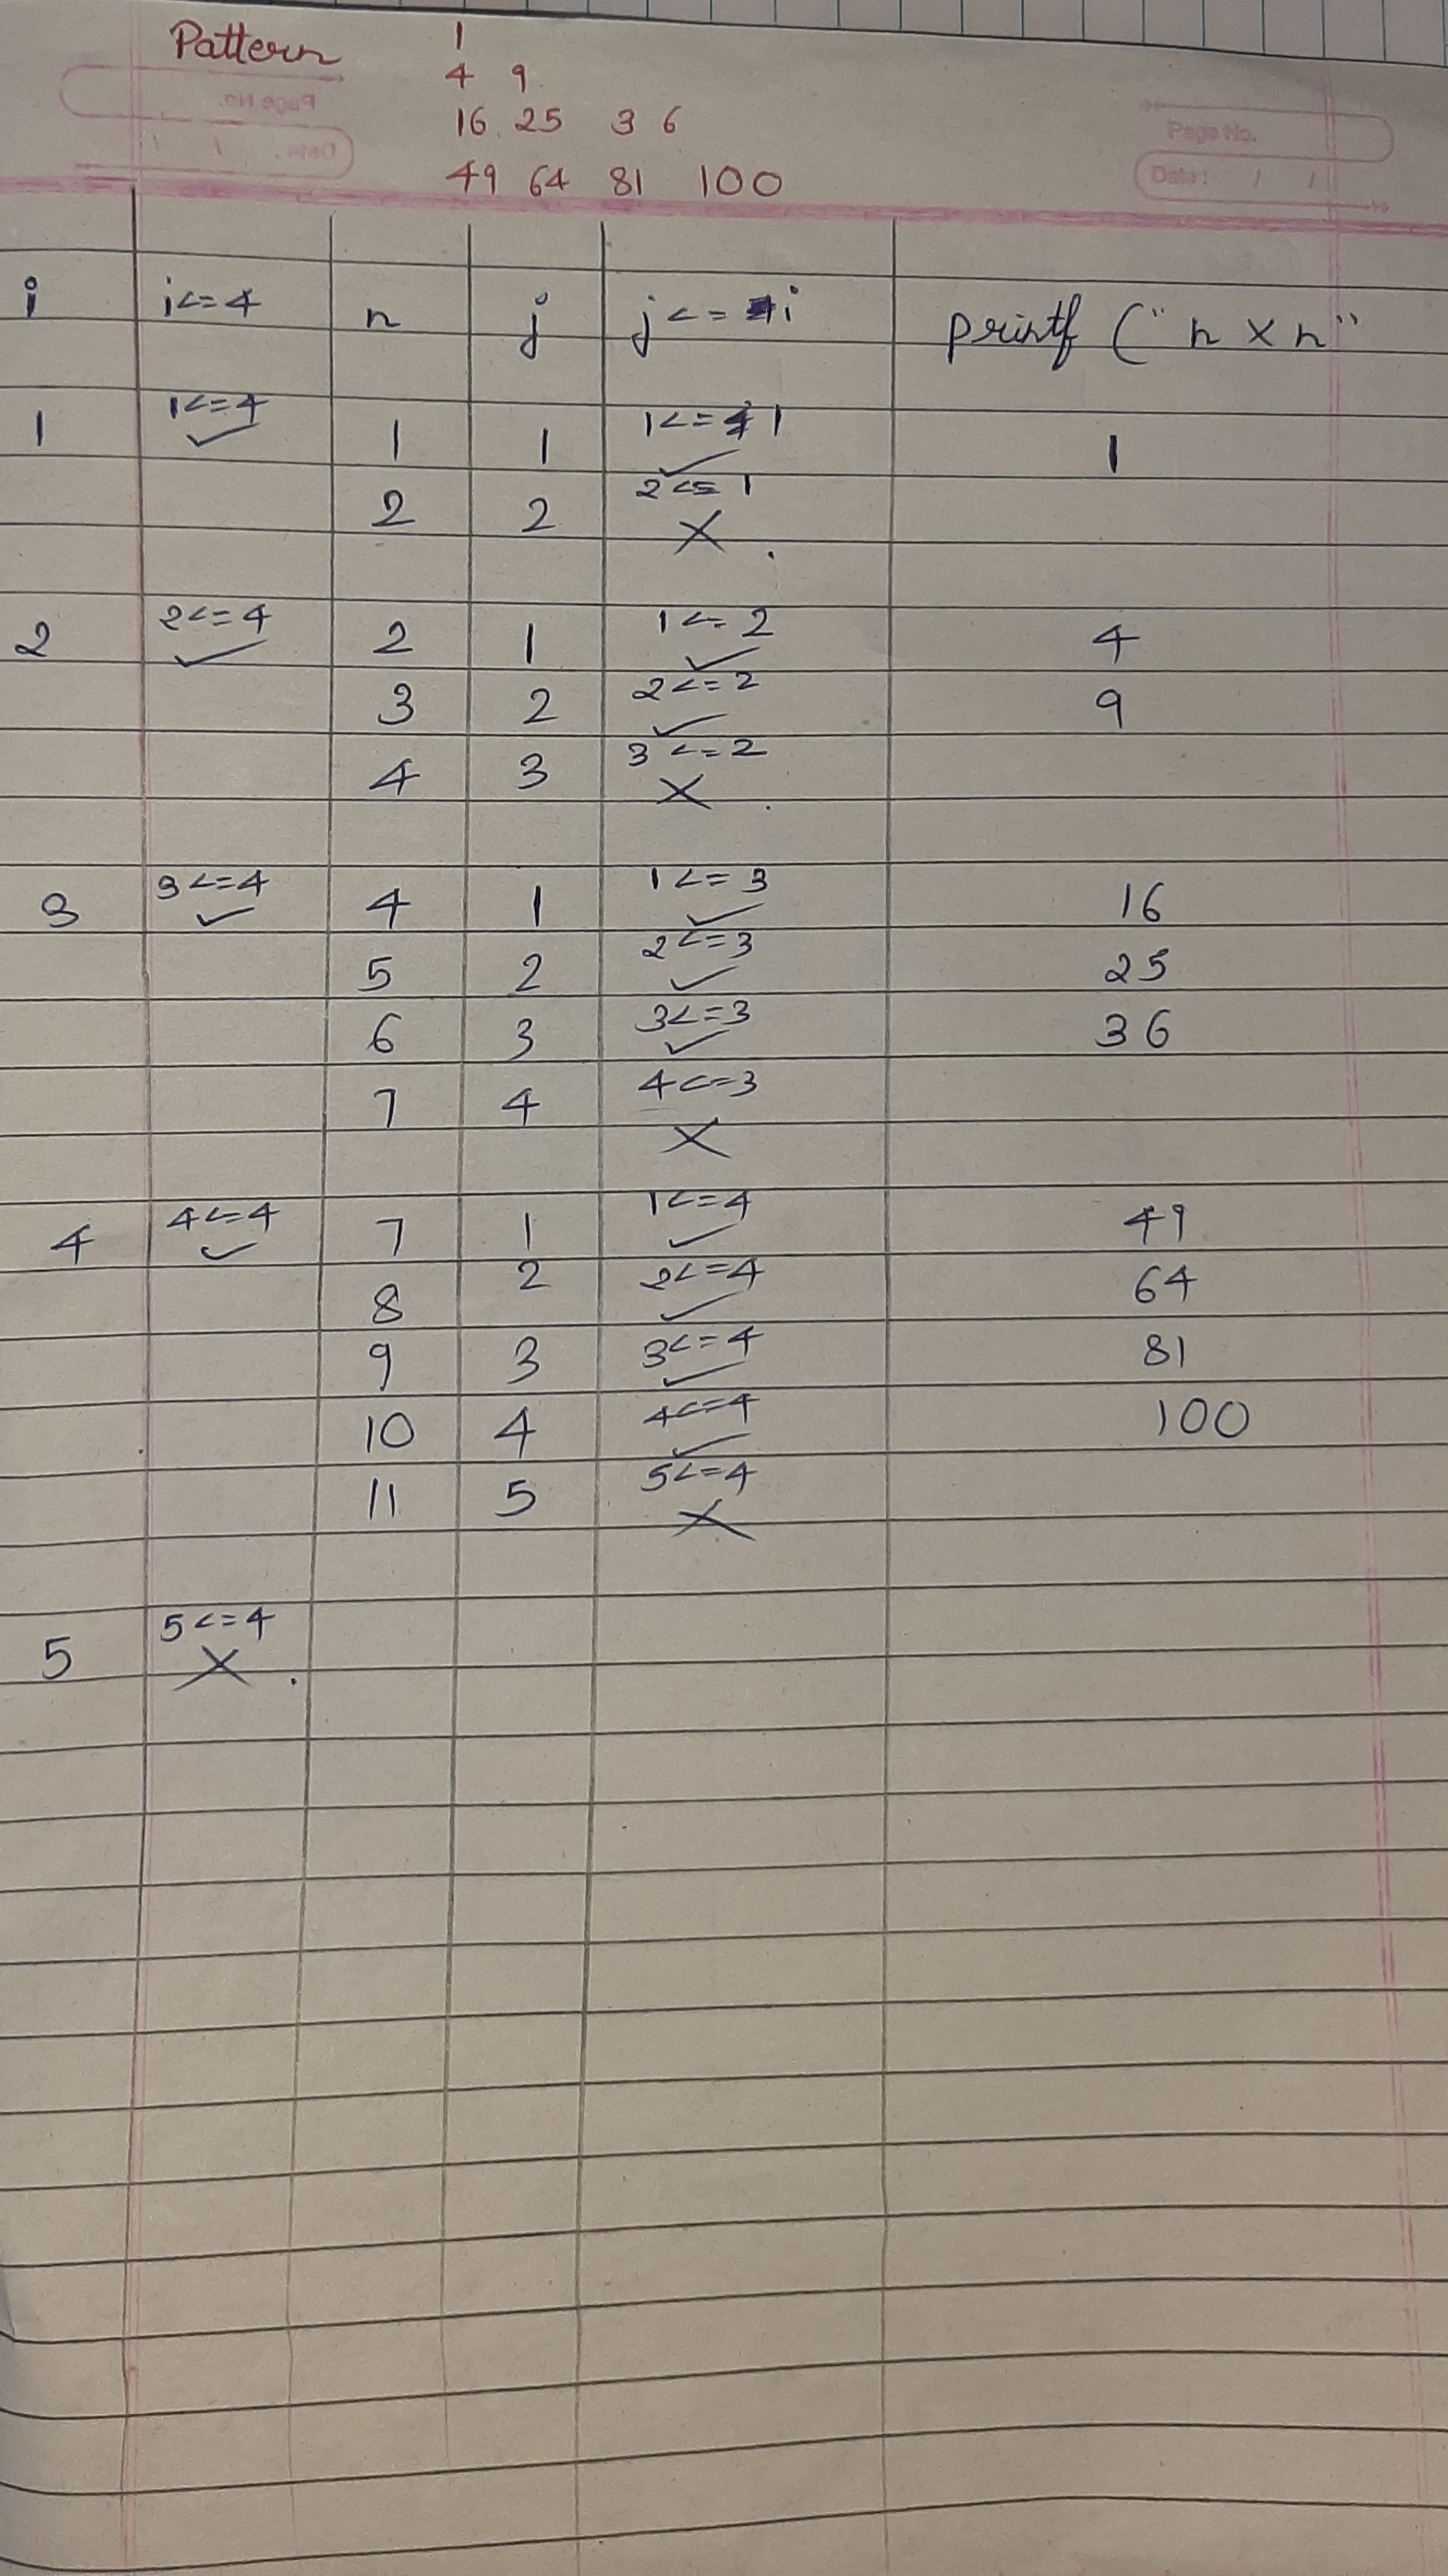 Pattern 1
4 9
Page No.
16 25 3 6
Page No.
Date: / /
49 64 81 100
Date: / /
i i<=4 n j j<=i printf ("n x n"
1 1<=4 ✓ 1 1 1<=1 ✓ 1
2 2 2<=1 X
2 2<=4 ✓ 2 1 1<=2 ✓ 4
3 2 2<=2 ✓ 9
4 3 3<=2 X
3 3<=4 ✓ 4 1 1<=3 ✓ 16
5 2 2<=3 ✓ 25
6 3 3<=3 ✓ 36
7 4 4<=3 X
4 4<=4 ✓ 7 1 1<=4 ✓ 49
8 2 2<=4 ✓ 64
9 3 3<=4 ✓ 81
10 4 4<=4 ✓ 100
11 5 5<=4 X
5 5<=4 X